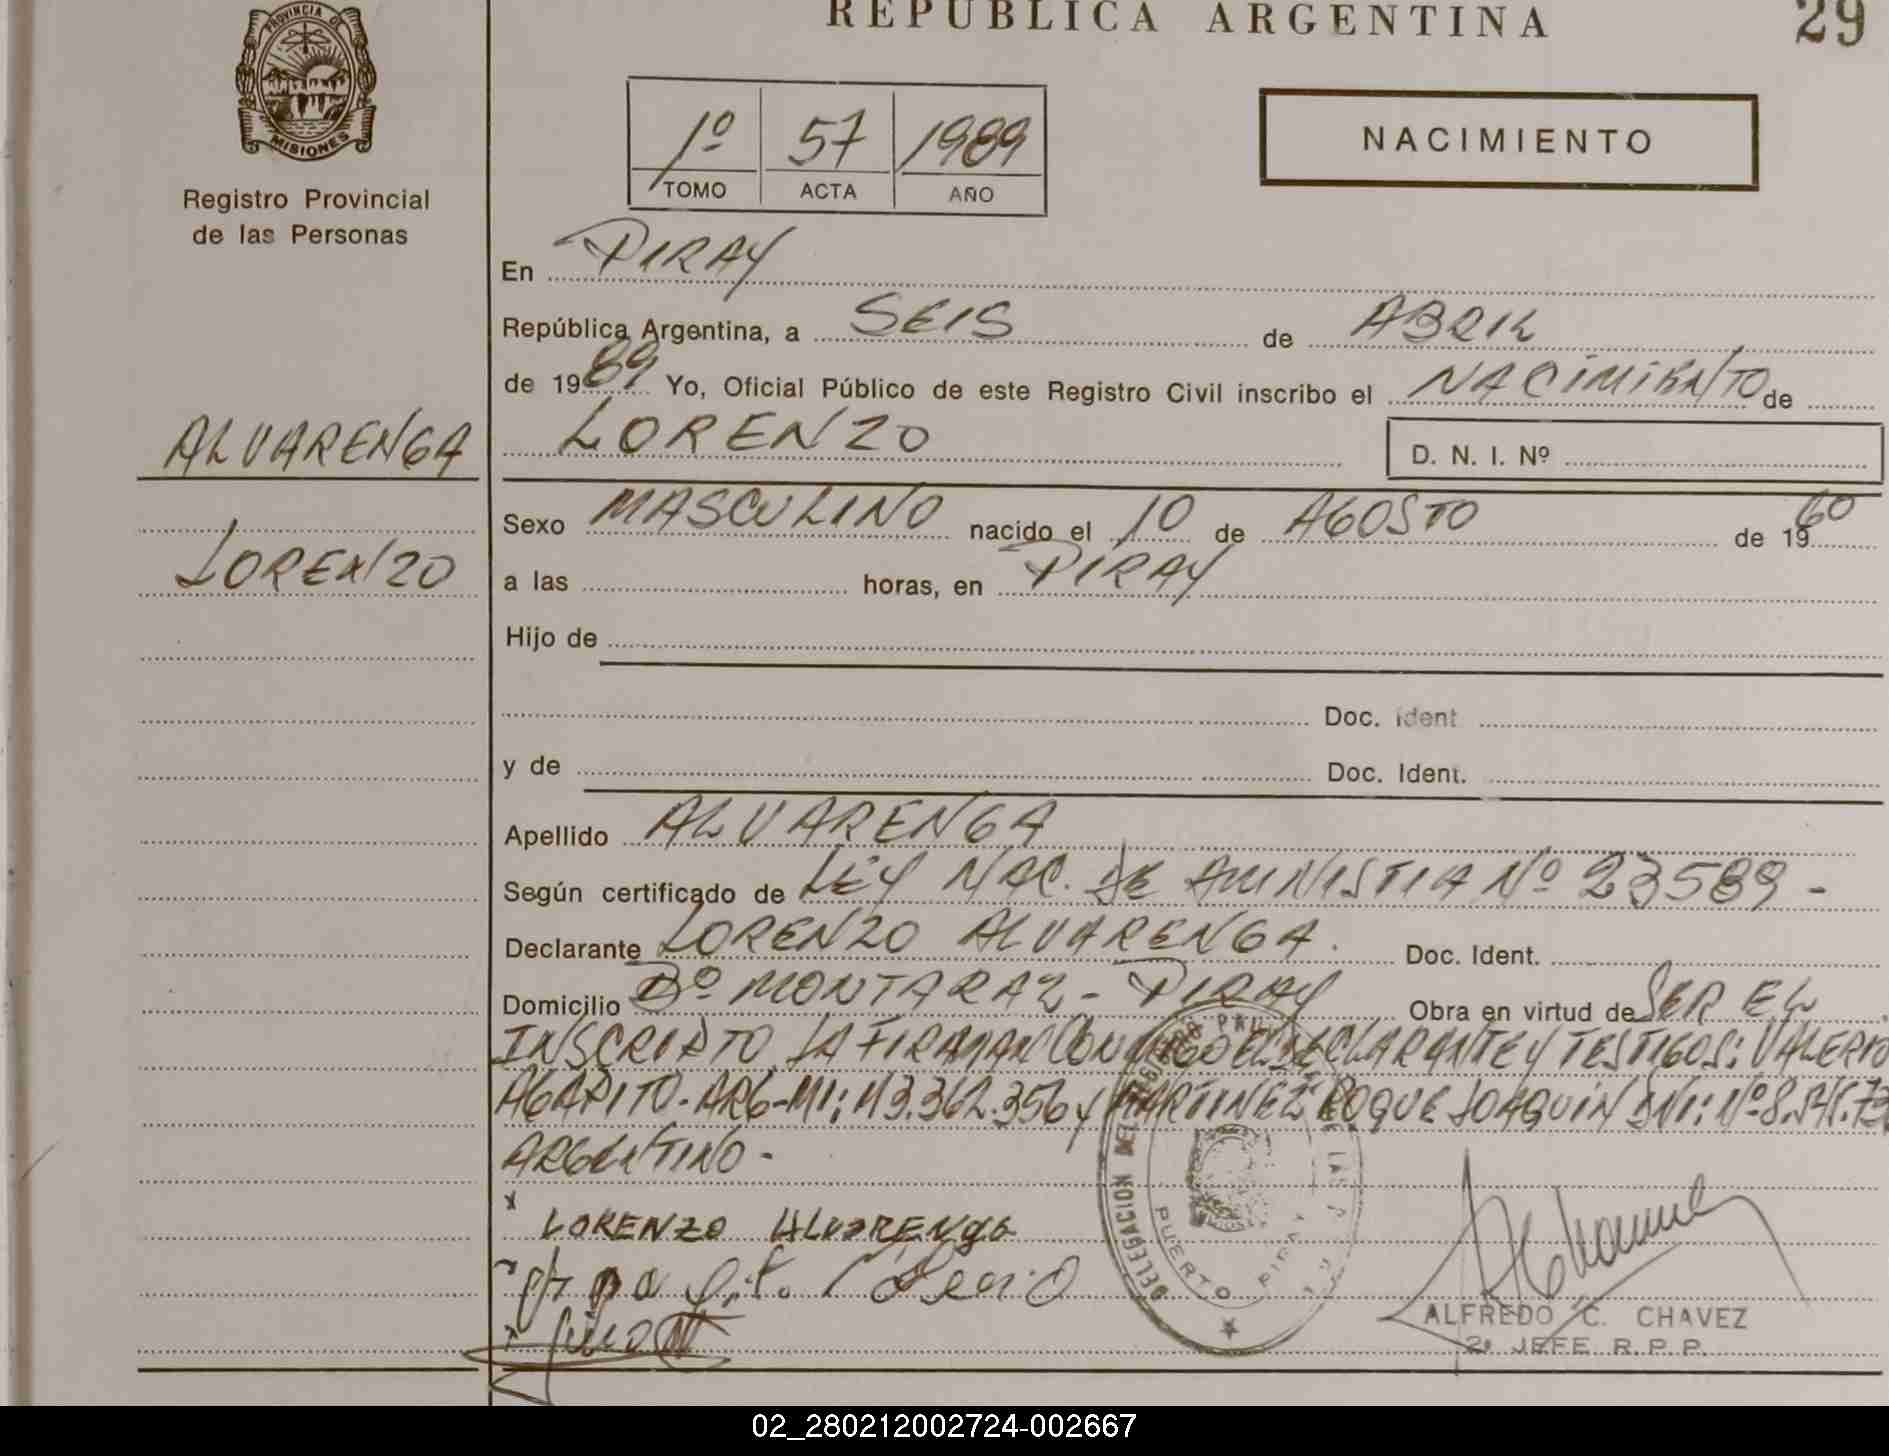 REPUBLICA ARGENTINA
29
PROVINCIA DE
MISIONES
Registro Provincial
de las Personas
1º 57 1989
TOMO ACTA AÑO
NACIMIENTO
En PIRAY
República Argentina, a SEIS de ABRIL
de 1989 Yo, Oficial Público de este Registro Civil inscribo el NACIMIENTO de
ALVARENGA
LORENZO
D. N. I. Nº
LORENZO
Sexo MASCULINO nacido el 10 de AGOSTO de 1960
a las horas, en PIRAY
Hijo de
Doc. Ident
y de Doc. Ident.
Apellido ALVARENGA
Según certificado de LEY NAC. DE AMINISTIA Nº 23589 -
Declarante LORENZO ALVARENGA. Doc. Ident.
Domicilio Bº MONTARAZ - PIRAY Obra en virtud de SER EL
INSCRIPTO LA FIRMAN CONMIGO EL DECLARANTE Y TESTIGOS: VALERIO
AGAPITO - ARG - MI: 113.362.356 y MARTINEZ ROQUE JOAQUIN DNI: Nº 8.541.73
ARGENTINO -
LORENZO ALVARENGA
DELEGACION DEL REGISTRO DE LAS
PUERTO PIRAY
ALFREDO C. CHAVEZ
2º JEFE R.P.P.
02_280212002724-002667